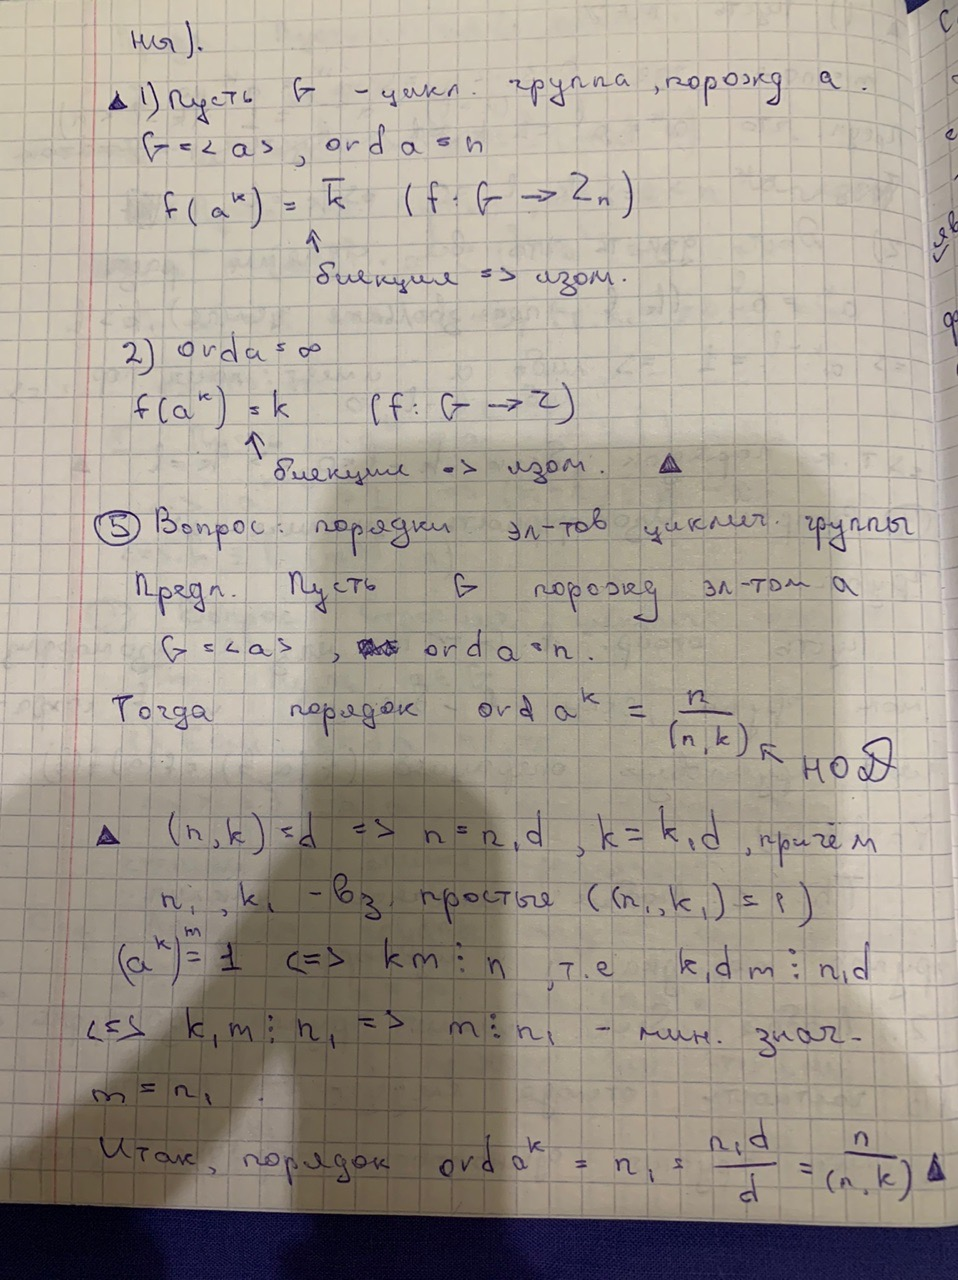 ны).
▲ 1) Пусть G - цикл. группа, порожд a.
G = <a>, ord a = n
f(aᵏ) = k̅ (f: G → Zₙ)
↑
биекция => изом.
2) ord a = ∞
f(aᵏ) = k (f: G → Z)
↑
биекция => изом. ▲
⑤ Вопрос: порядки эл-тов циклич. группы
Предл. Пусть G порожд эл-том a
G = <a>, ord a = n.
Тогда порядок ord aᵏ = n/(n,k) ↖ НОД
▲ (n,k) = d => n = n₁d, k = k₁d, причём
n₁, k₁ - вз. простые ((n₁,k₁) = 1)
(aᵏ)ᵐ = 1 <=> km ⋮ n, т.е k₁dm ⋮ n₁d
<=> k₁m ⋮ n₁ => m ⋮ n₁ - мин. знач-
m = n₁.
Итак, порядок ord aᵏ = n₁ = n₁d/d = n/(n,k) ▲